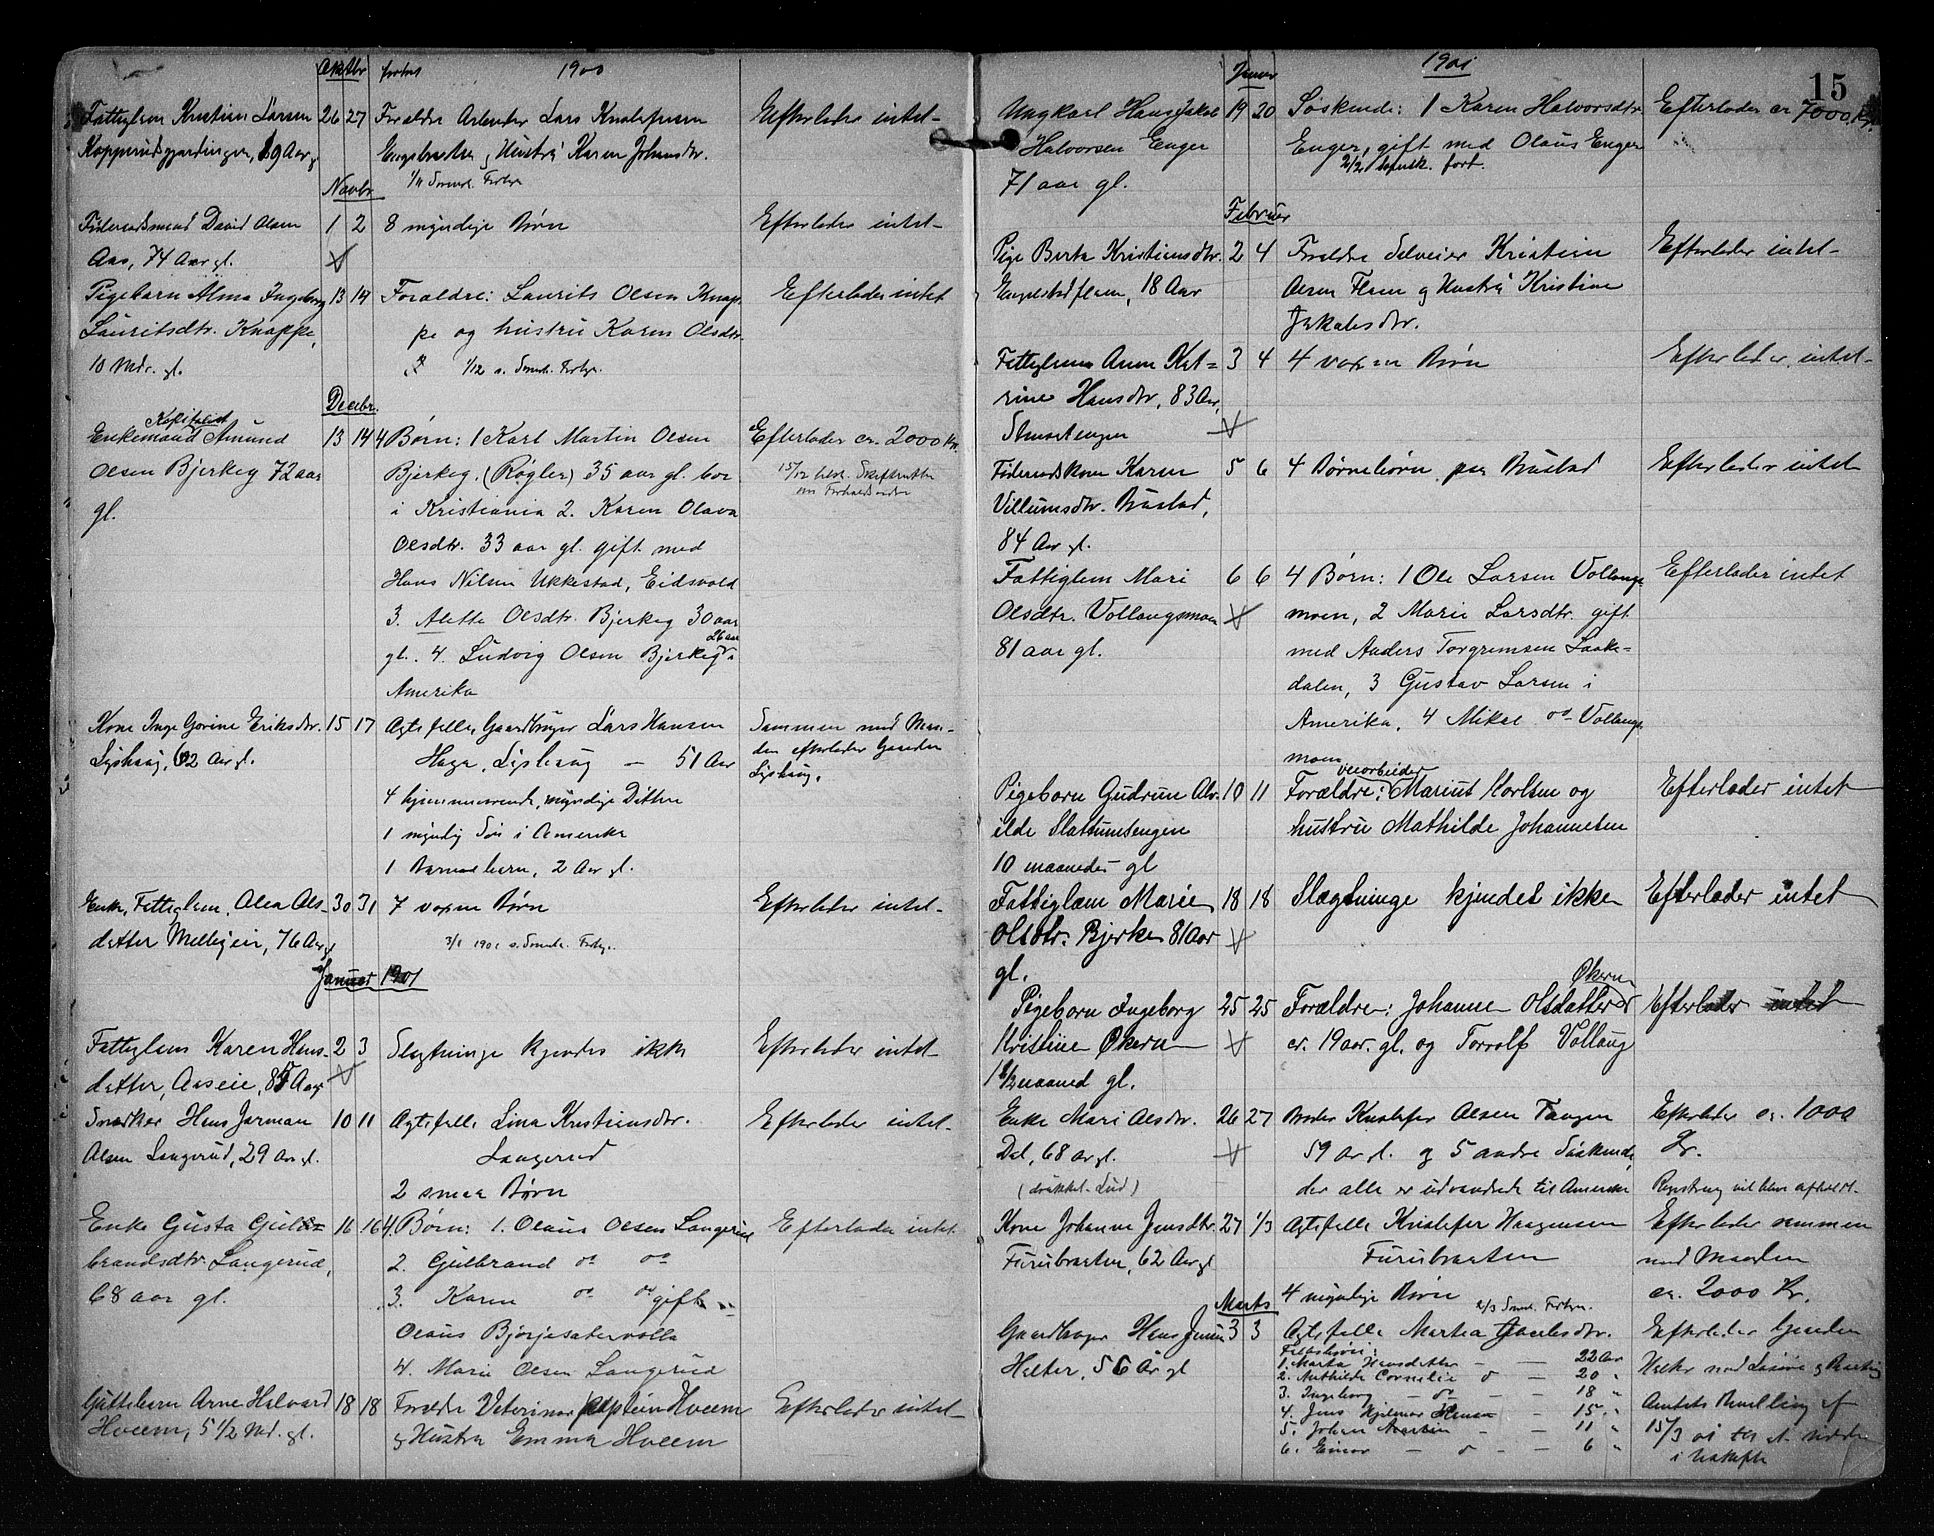 Oktbr 1900
Fattiglem Kristian Larsen 26 27 Forældre Arbeider Lars Kristofersen Efterlader intet
19 Aar Hustru Karen Johansdtr.
Novbr
Føderaadsmand David Olsen 1 2 8 myndige Børn Efterlader intet
Aas, 74 Aar gl.
Pigebarn Alma Ingeborg 13 14 Forældre: Laurits Olsen Knap- Efterlader intet
Lauritsdtr. Knappe, pe og hustru Karen Olsdtr.
10 Mdr. gl. 1/12 s.
Decbr.
Kapitalist
Enkemand Amund 13 14 4 Børn: 1 Karl Martin Olsen Efterlader ca. 2000 Kr.
Olsen Bjerkeg 72 aar Bjerkeg, (Røgler) 35 aar gl. bor 15/12
gl. i Kristiania 2. Karen Olava
Olsdtr. 33 aar gl. gift med
Hans Nilsen Ukkestad, Eidsvold
3. Alette Olsdtr. Bjerkeg 30 aar
26 aar
gl. 4. Ludvig Olsen Bjerkeg i
Amerika
Kone Inge Gorine Eriksdtr. 15 17 Ægtefelle, Gaardbruger Lars Hansen Sammen med Man-
62 Aar gl. Haga, — 51 Aar den efterlader Gaarden
4 hjemmeværende, myndige Døttre
1 myndig Søn i Amerika
1 Barnebarn, 2 Aar gl.
Enke, Fattiglem, Olea Ols- 30 31 7 voxne Børn Efterlader intet
datter 76 Aar gl 3/1 1901 s.
Januar 1901
Fattiglem Karen Hans- 2 3 Slegtninge kjendes ikke Efterlader intet
datter, Aaseie, 85 Aar
Snedker Hans Jørman 10 11 Ægtefelle Lina Kristiansdtr. Efterlader intet
Olsen Langerud, 29 Aar gl. Langerud
2 smaa Børn
Enke Gusta Gul- 16 16 4 Børn: 1. Olaus Olsen Langerud Efterlader intet
brandsdtr Langerud, 2. Gulbrand do do
68 aar gl. 3. Karen do do gift m
Olaus
4. Marie Olsen Langerud
Guttebarn Arne Halvard 18 18 Forældre Veterinær kaptein Hveem Efterlader intet
Hveem, 5 1/2 Md. gl. og Hustru Emma Hveem
15
Januar 1901
Ungkarl Hans Jakob 19 20 Søskende: 1 Karen Halvorsdtr. Efterlader ca 7000 Kr.
Halvorsen Enger Enger, gift med Olaus Enger
71 aar gl. 2/2
Februar
Pige Berta Kristiansdtr. 2 4 Forældre Selveier Kristian Efterlader intet
18 Aar Olsen og Hustru Kristine
Jakobsdtr.
Fattiglem Anne Kat- 3 4 4 voxne Børn Efterlader intet
rine Hansdtr, 83 Aar,
Føderaadskone Karen 5 6 4 Børnebørn paa Bustad Efterlader intet
Villumsdtr. Bustad,
84 Aar gl.
Fattiglem Mari 6 6 4 Børn: 1 Ole Larsen Vollaugs Efterlader intet
Olsdtr. Vollaugsmoen moen, 2 Marie Larsdtr. gift
81 aar gl. med Anders Torgremsen Laake-
dalen, 3 Gustav Larsen i
Amerika, 4 Mikal do Vollaugs
moen
Pigebarn Gudrun Alv- 10 11 Forældre: Marius Karlsen og Efterlader intet
ilde Slattumsengen hustru Mathilde Johannesen
10 maaneder gl
Fattiglem Marie 18 18 Slægtninge kjendes ikke Efterlader intet
Olsdtr. Bjerke 81 Aar
gl.
Økern
Pigebarn Ingeborg 25 25 Forældre: Johanne Olsdatter Efterlader intet
Kristine Økern ca. 19 aar. gl. og Torolf Vollaug
1 1/2 maaned gl.
Enke Mari Olsdtr. 26 27 Broder Kristofer Olsen Tangen Efterlader ca. 1000
Dal, 68 Aar gl. 59 Aar gl. og 5 andre Søskende, Kr.
der alle er udvandrede til Amerika
Kone Johanne Jensdtr. 27 1/3 Ægtefelle Kristofer Haagensen Efterlader sammen
Furubraaten, 62 Aar gl Furubraaten med Manden
4 myndige Børn ca. 2000 Kr.
Marts
Gaardbruger Hans Jensen 3 3 Ægtefelle Martea Efterlader Gaarden
Helter, 56 Aar gl
1. Marta Hansdatter — 22 Aar
2. Mathilde Cornelia do — 20 "
3. Ingeborg — do — 18 "
4. Jens Hjalmar Hansen — 15 "
5. Johan — 11 "
6. Einar — do — 6 "
15/3 01